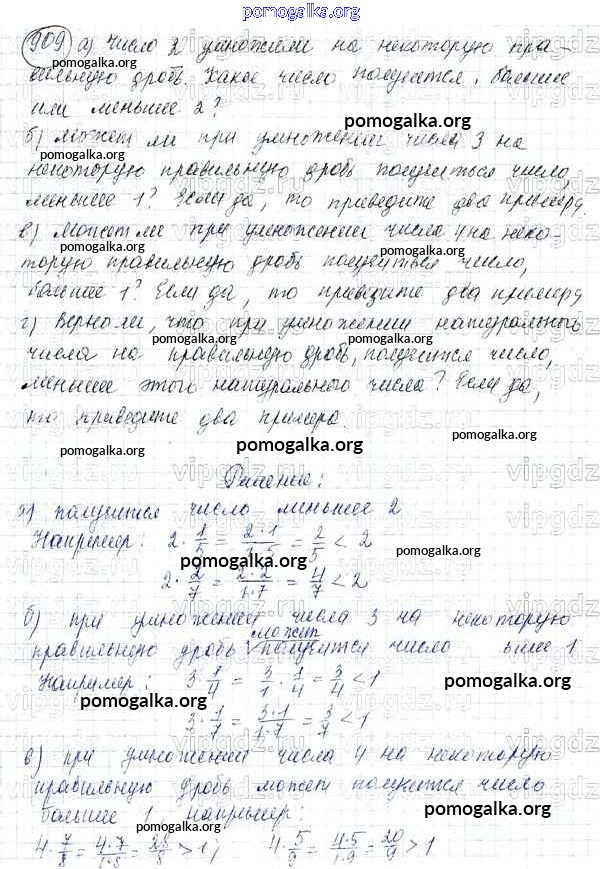 pomogalka.org
909 а) Число 2 умножили на некоторую пра-
вильную дробь. Какое число получится, большее
или меньшее 2?
pomogalka.org
б) может ли при умножении числа 3 на
pomogalka.org
некоторую правильную дробь получиться число,
меньшее 1? Если да, то приведите два примера.
pomogalka.org
в) может ли при умножении числа 4 на неко-
pomogalka.org
торую правильную дробь получиться число,
большее 1? Если да, то приведите два примера
pomogalka.org
г) верно ли, что при умножении натурального
pomogalka.org
числа на правильную дробь, получится число,
меньшее этого натурального числа? Если да,
pomogalka.org
то приведите два примера.
pomogalka.org
pomogalka.org
Решение:
а) получится число меньшее 2
pomogalka.org
Например: 2·1/5 = 2·1/1·5 = 2/5 < 2
pomogalka.org
2·2/7 = 2·2/1·7 = 4/7 < 2
pomogalka.org
б) при умножении числа 3 на некоторую
может
правильную дробь получится число ьшее 1
pomogalka.org
Например: 3·1/4 = 3/1 · 1/4 = 3/4 < 1
pomogalka.org
pomogalka.org
3·1/7 = 3·1/1·7 = 3/7 < 1
pomogalka.org
в) при умножении числа 4 на некоторую
pomogalka.org
правильную дробь может получится число
большее 1, например:
pomogalka.org
pomogalka.org
4·7/8 = 4·7/1·8 = 28/8 > 1; 4·5/9 = 4·5/1·9 = 20/9 > 1